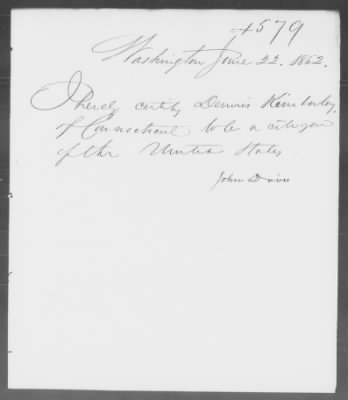 4579
Washington June 22. 1852.
I hereby certify Dennis Kimberley,
of Connecticut to be a citizen
of the United States.
John Davis